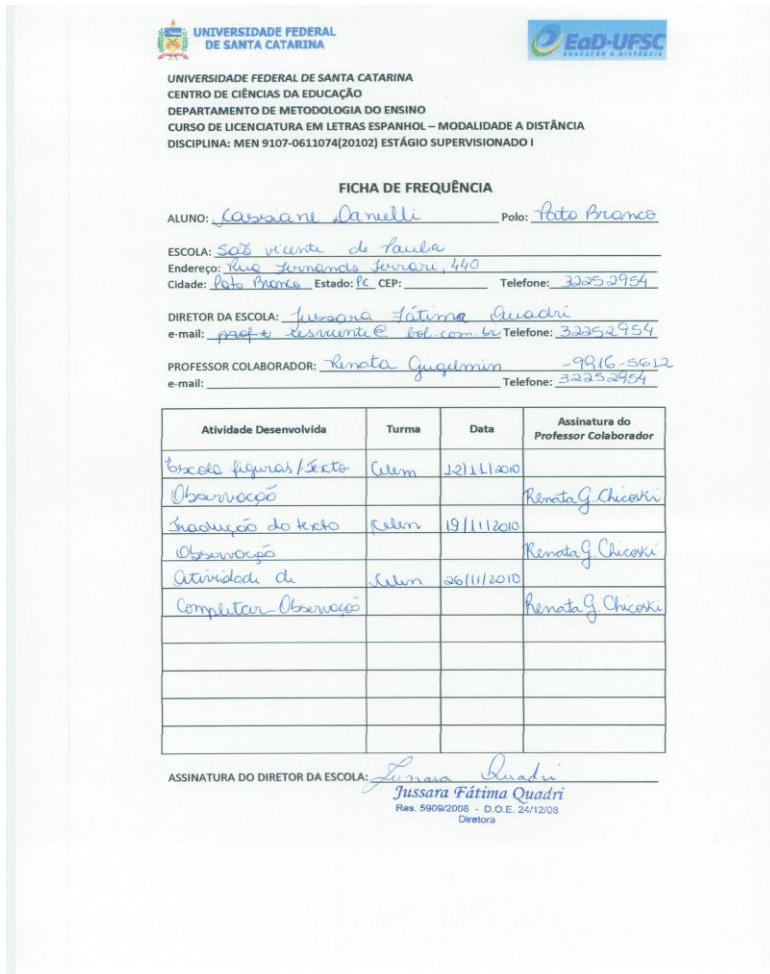 UNIVERSIDADE FEDERAL
DE SANTA CATARINA
EaD-UFSC
EDUCAÇÃO A DISTÂNCIA
UNIVERSIDADE FEDERAL DE SANTA CATARINA
CENTRO DE CIÊNCIAS DA EDUCAÇÃO
DEPARTAMENTO DE METODOLOGIA DO ENSINO
CURSO DE LICENCIATURA EM LETRAS ESPANHOL – MODALIDADE A DISTÂNCIA
DISCIPLINA: MEN 9107-0611074(20102) ESTÁGIO SUPERVISIONADO I
FICHA DE FREQUÊNCIA
ALUNO: Cassiane Danielli Polo: Pato Branco
ESCOLA: São vicente de Paula
Endereço: Rua Fernando Ferrari, 440
Cidade: Pato Branco Estado: CEP: Telefone: 32252954
DIRETOR DA ESCOLA: Jussara Fátima Quadri
e-mail: bol.com.br Telefone: 32252954
PROFESSOR COLABORADOR: Renata Gugelmin -9916-5612
e-mail: Telefone: 32252954
Atividade Desenvolvida Turma Data Assinatura do Professor Colaborador
figuras/Texto Celem 12/11/2010
Observação Renata G. Chicoski
Tradução do texto Celem 19/11/2010
Observação Renata G. Chicoski
Atividade de Celem 26/11/2010
Completar Observação Renata G. Chicoski
ASSINATURA DO DIRETOR DA ESCOLA: Jussara Quadri
Jussara Fátima Quadri
Res. 5909/2008 - D.O.E. 24/12/08
Diretora